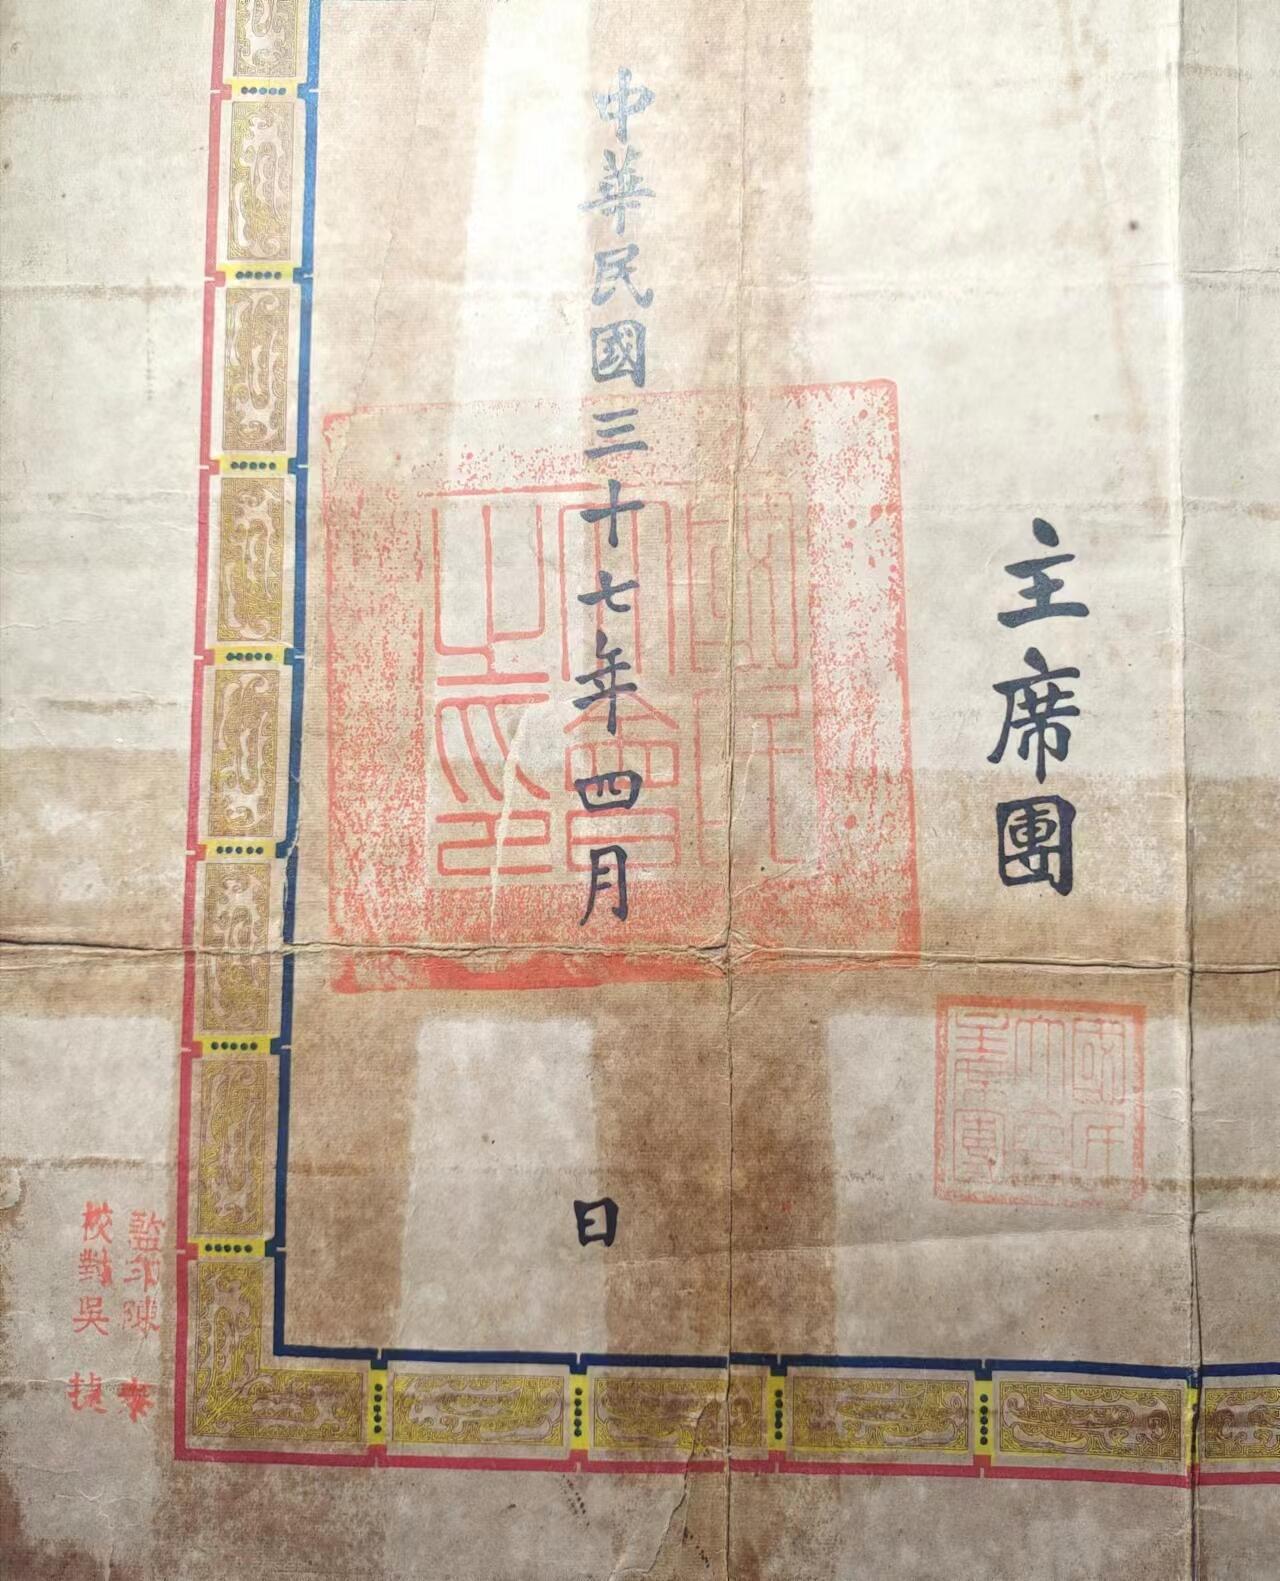 主席團
國民大會主席團
中華民國三十七年四月 日
國民大會之印
監印陳
校對吳 捷